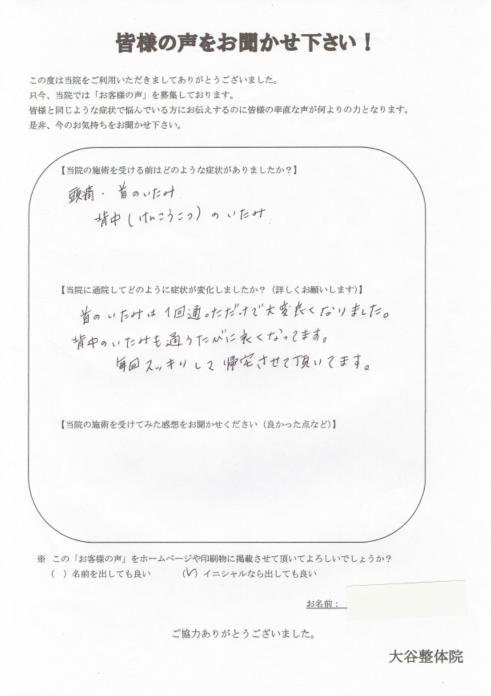 皆様の声をお聞かせ下さい！
この度は当院をご利用いただきましてありがとうございました。
只今、当院では「お客様の声」を募集しております。
皆様と同じような症状で悩んでいる方にお伝えするのに皆様の率直な声が何よりの力となります。
是非、今のお気持ちをお聞かせ下さい。
【当院の施術を受ける前はどのような症状がありましたか？】
頭痛・首のいたみ
背中(けんこうこつ)のいたみ
【当院に通院してどのように症状が変化しましたか？（詳しくお願いします）】
首のいたみは1回通っただけで大変良くなりました。
背中のいたみも通うたびに良くなってます。
毎回スッキリして帰宅させて頂いてます。
【当院の施術を受けてみた感想をお聞かせください（良かった点など）】
※ この「お客様の声」をホームページや印刷物に掲載させて頂いてよろしいでしょうか？
（ ）名前を出しても良い （✓）イニシャルなら出しても良い
お名前：
ご協力ありがとうございました。
大谷整体院